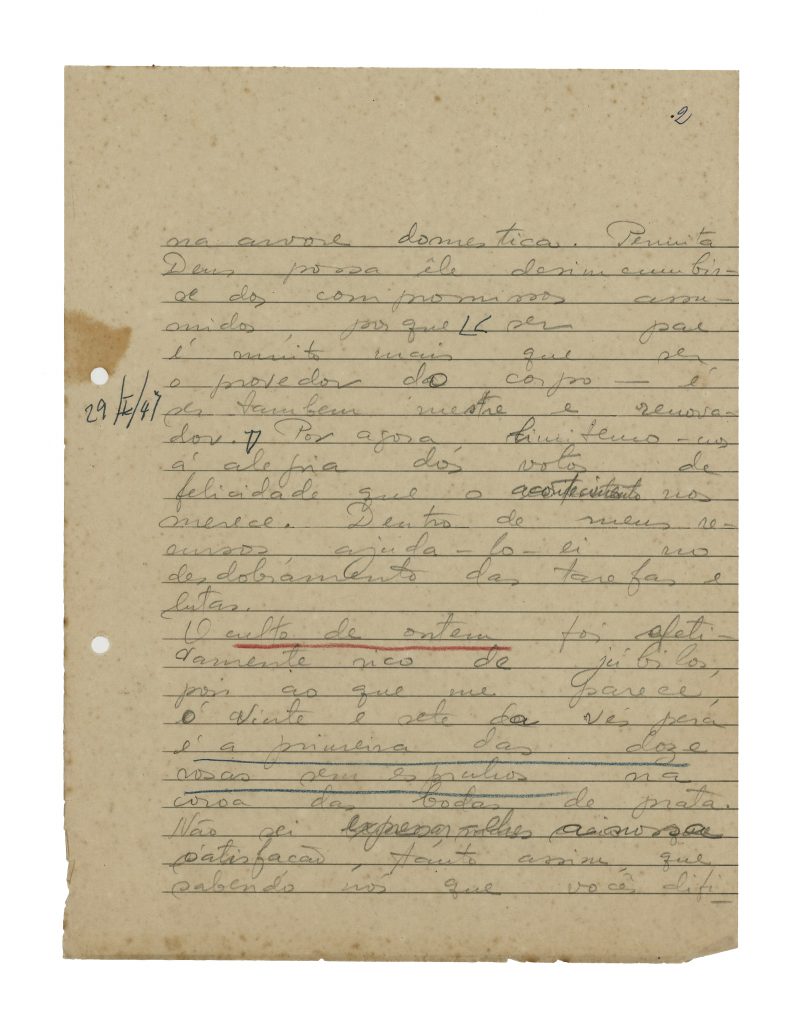 .2
na arvore domestica. Permita
Deus possa êle desincumbir-
se dos compromissos assu-
midos, porque ser pae
é muito mais que ser
o provedor do corpo — é
29/I/47
ser tambem mestre e renova-
dor. Por agora limitemo-nos
á alegria dos votos de
felicidade que o acontecimento nos
merece. Dentro de meus re-
cursos ajuda-lo-ei no
desdobramento das tarefas e
lutas.
O culto de ontem foi efeti-
vamente rico de júbilos,
pois ao que me parece,
o vinte e sete da vespera
é a primeira das doze
rosas sem espinhos na
corôa das bodas de prata.
Não sei expressar-lhes a nossa
satisfação, tanto assim, que
sabendo nós que vocês difi-